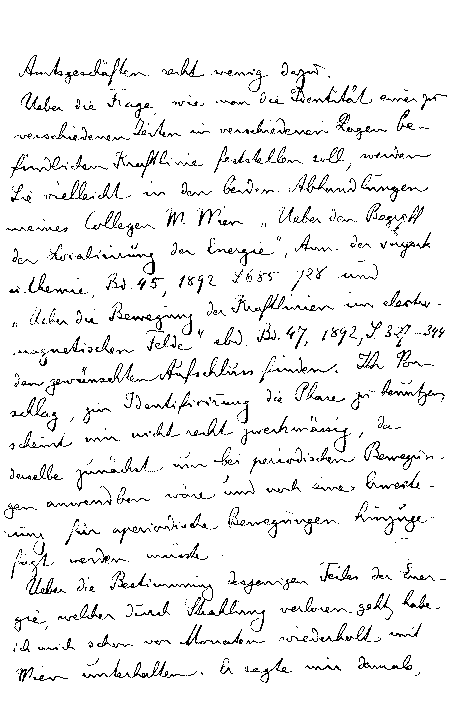 Amtsgeschäften recht wenig dazu.
Ueber die Frage, wie man die Identität einer zu
verschiedenen Zeiten in verschiedenen Lagen be-
findlichen Kraftlinie feststellen soll, werden
Sie vielleicht in den beiden Abhandlungen
meines Collegen W. Wien „Ueber den Begriff
der Localisirung der Energie", Ann. der Physik
u. Chemie, Bd. 45, 1892 S. 685 728 und
„Ueber die Bewegung der Kraftlinien im electro-
magnetischen Felde" ebd. Bd. 47, 1892, S. 327-344
den gewünschten Aufschluss finden. Ihr Vor-
schlag, zur Identifizirung die Phase zu benutzen,
scheint mir nicht recht zweckmässig, da
derselbe zunächst nur bei periodischen Bewegun-
gen anwendbar wäre und noch eine Erweite-
rung für aperiodische Bewegungen hinzuge-
fügt werden müsste.
Ueber die Bestimmung desjenigen Teiles der Ener-
gie, welcher durch Strahlung verloren geht, habe
ich mich schon vor Monaten wiederholt mit
Wien unterhalten. Er sagte mir damals,